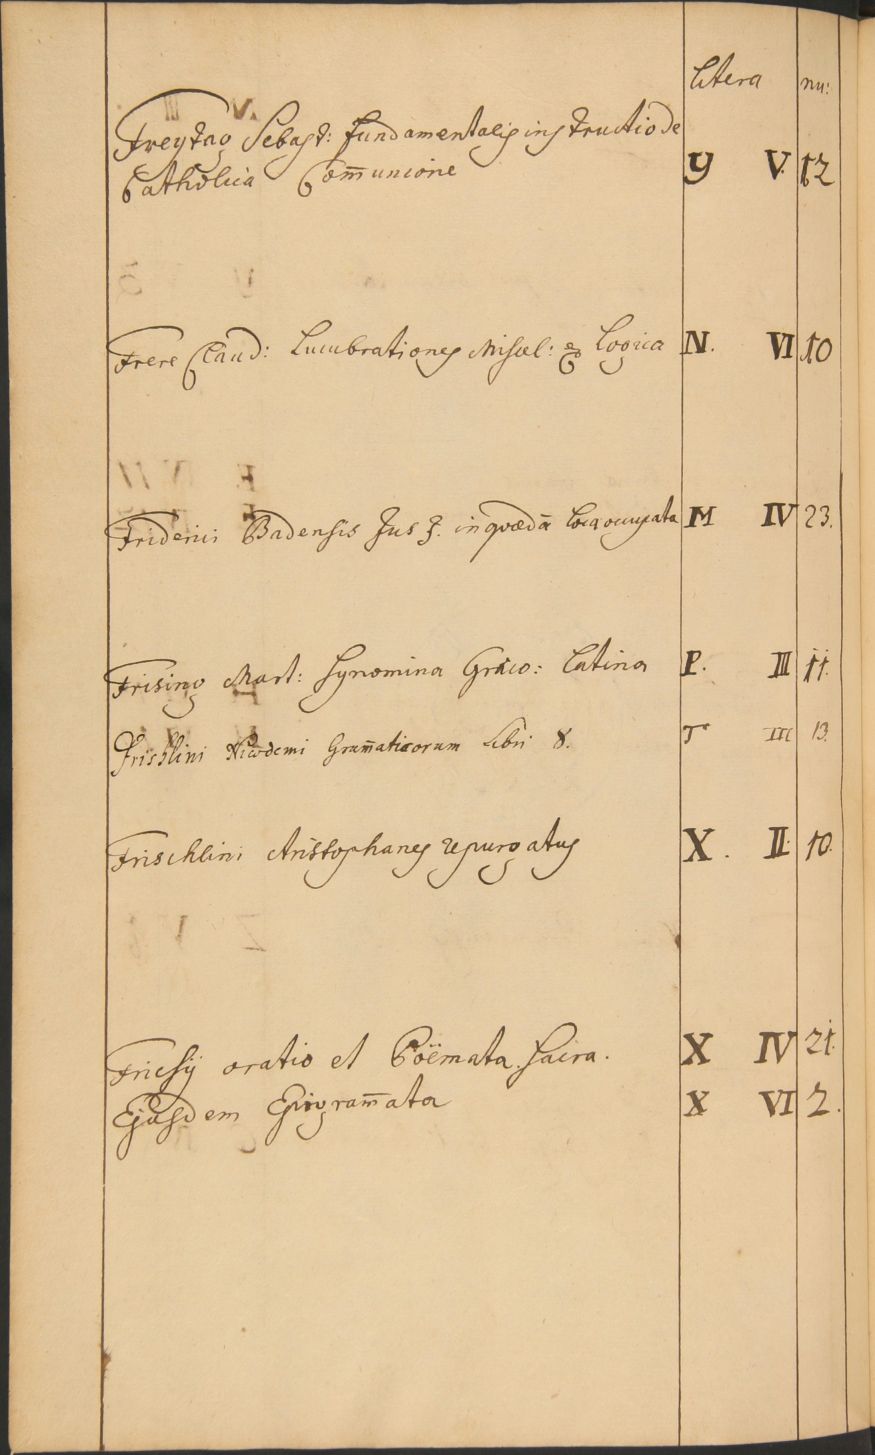 litera nu:
Freytag Sebast: fundamentalis instructio de
Catholica Com̄unione Y V. 12
Frere Claud: Lucubrationes Miscel: & Logica N. VI 10
Friderici Badensis Jus J. in quædā loca occupata M IV 23.
Frising Mart: Synomina Græco: Latina P. III 11.
Frischlini Nicodemi Gram̄aticorum Libri 8. T III 13.
Frischlini Aristophanes repurgatus X. II. 10.
Fricsij oratio et Poëmata Sacra. X IV 21.
Ejusdem Epigram̄ata X VI 2.